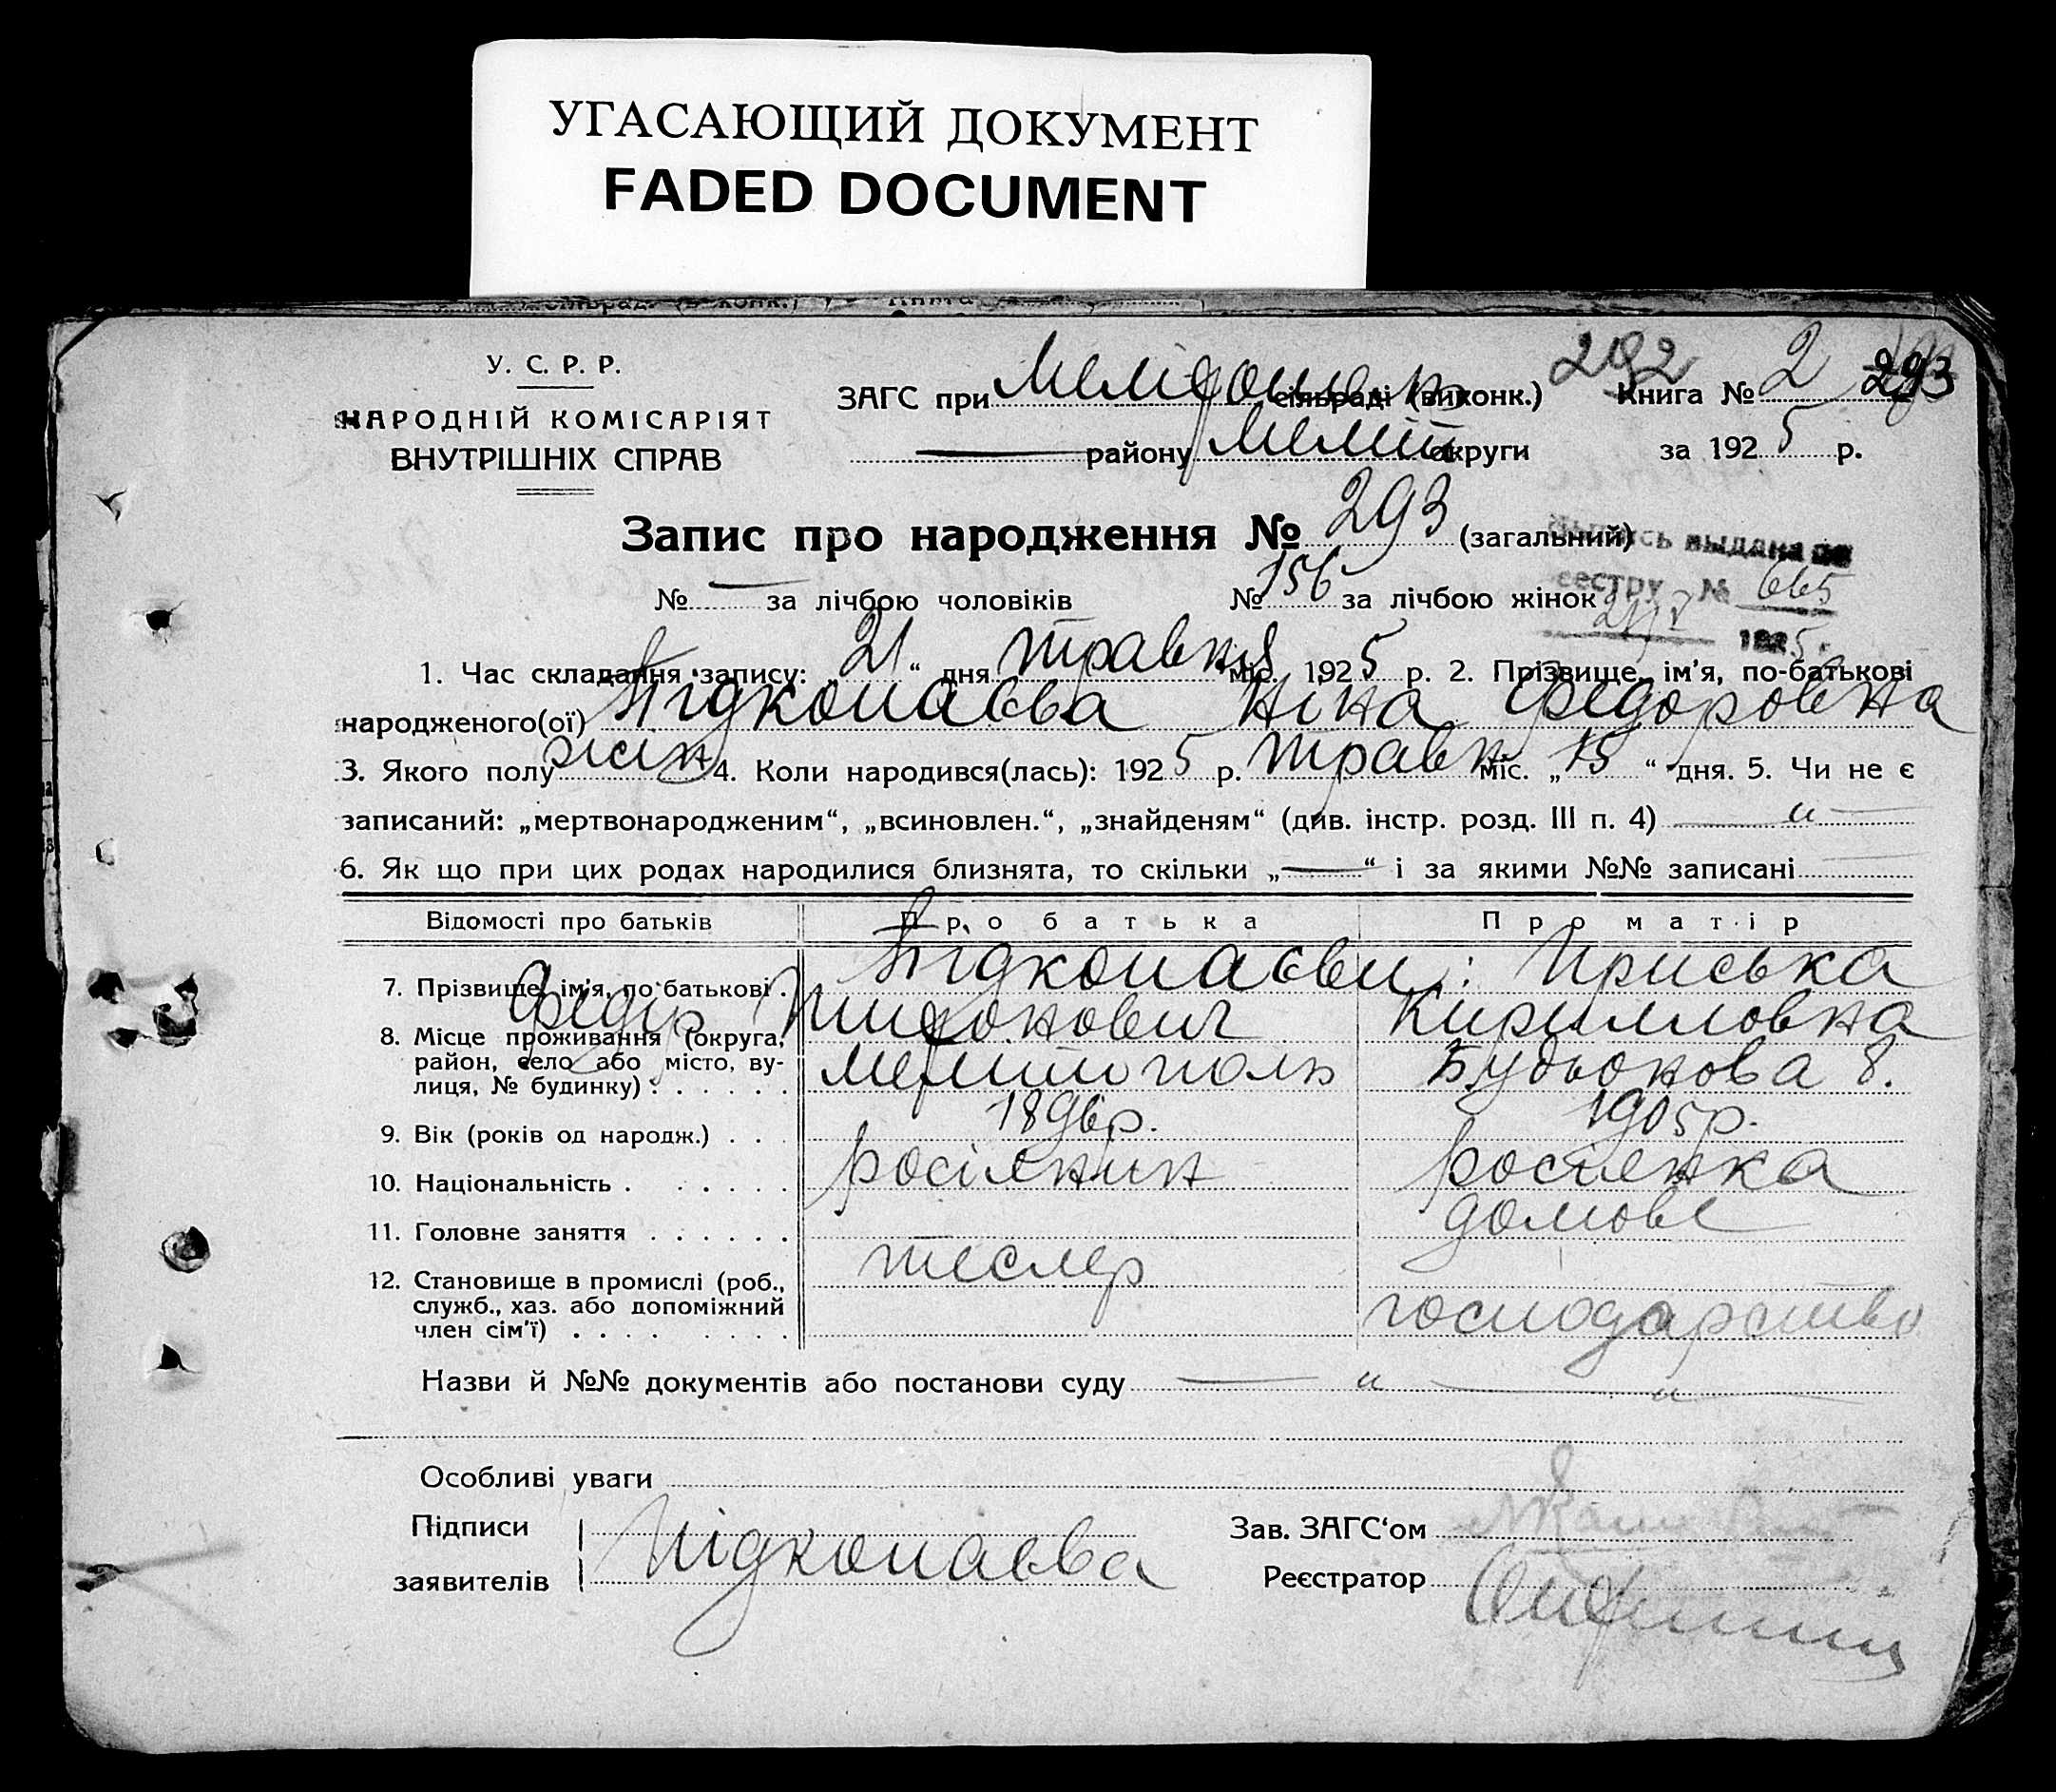 УГАСАЮЩИЙ ДОКУМЕНТ
FADED DOCUMENT
У. С. Р. Р.
НАРОДНІЙ КОМІСАРІЯТ
ВНУТРІШНІХ СПРАВ
292 293
ЗАГС при сільраді (виконк.) Книга № 2
району Меліт округи за 1925 р.
Запис про народження № 293 (загальний)
выдана
№ — за лічбою чоловіків № 156 за лічбою жінок
сестру № 665
1. Час складання запису: „21“ дня травня міс. 1925 р. 2. Прізвище, ім'я, по-батькові
народженого(ої) Підкопаєва Ніна Федоровна
3. Якого полу жін 4. Коли народився(лась): 1925 р. травн міс. „15“ дня. 5. Чи не є
записаний: „мертвонародженим“, „всиновлен.“, „знайденям“ (див. інстр. розд. III п. 4) — „ —
6. Як що при цих родах народилися близнята, то скільки „—“ і за якими №№ записані
Відомості про батьків Про батька Про матір
7. Прізвище, ім'я, по-батькові Підкопаєви: Приська
Федір Кирилловна
8. Місце проживання (округа, район, село або місто, вулиця, № будинку) Мелітополь Будьонова 8.
9. Вік (років од народж.) 1896р. 1905р.
10. Національність росіянин росіянка
11. Головне заняття домове
12. Становище в промислі (роб., служб., хаз. або допоміжний член сім'ї) тесляр господарство
Назви й №№ документів або постанови суду — „ — „ —
Особливі уваги
Підписи заявителів Підкопаєва
Зав. ЗАГС'ом
Реєстратор